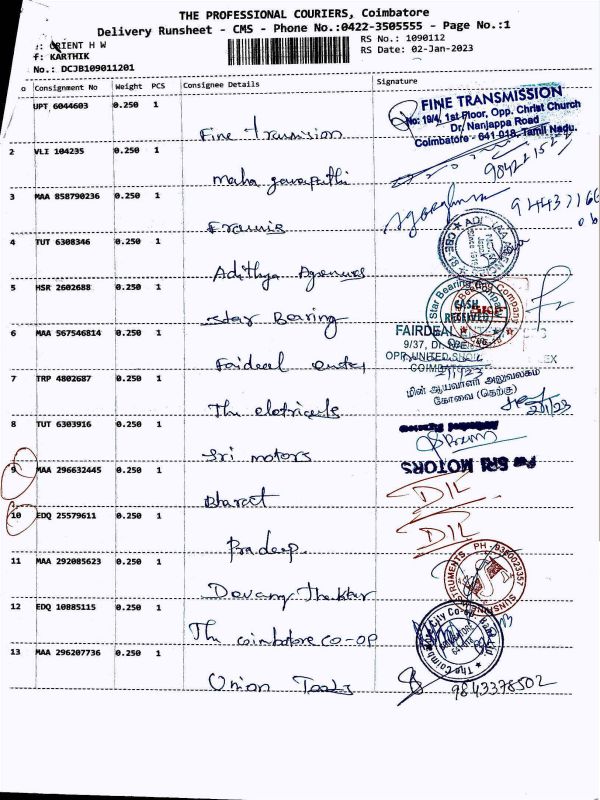 THE PROFESSIONAL COURIERS, Coimbatore
Delivery Runsheet - CMS - Phone No.:0422-3505555 - Page No.:1
: ORIENT H W
RS No.: 1090112
f: KARTHIK
RS Date: 02-Jan-2023
No.: DCJB109011201
o Consignment No Weight PCS Consignee Details Signature
UPT 6044603 0.250 1
Fine transmision
FINE TRANSMISSION
No: 19/4, 1st Floor, Opp. Christ Church
Dr. Nanjappa Road
Coimbatore - 641 018, Tamil Nadu.
2 VLI 104235 0.250 1
Maha ganapathi
3 MAA 858790236 0.250 1
Francis
4 TUT 6308346 0.250 1
Adithya Agencies
5 HSR 2602688 0.250 1
Star Bearing
Star Bearing Company
CASH
RECEIVED
6 MAA 567546814 0.250 1
Faideal
FAIRDEAL
9/37, Dr.
OPP. UNITED SHOP
7 TRP 4802687 0.250 1
The
2/1/23
மின் ஆயவாளர் அலுவலகம்
கோவை (தெற்கு)
2/1/23
8 TUT 6303916 0.250 1
Sri motors
Authorised Signatory
For SRI MOTORS
9 MAA 296632445 0.250 1
Bharat
DIL
10 EDQ 25579611 0.250 1
Pradeep
DIL
11 MAA 292085623 0.250 1
Devang Thakkar
SUNSHINE INSTRUMENTS PH - 9360023357
12 EDQ 10885115 0.250 1
The coimbatore co-op
The Coimbatore City Co-op Bank Ltd.
13 MAA 296207736 0.250 1
Union Tools
9843378502